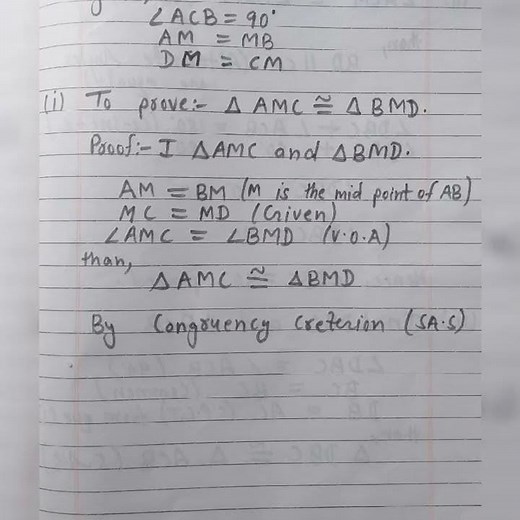 ∠ACB = 90°
AM = MB
DM = CM
(i) To prove:- Δ AMC ≅ Δ BMD.
Proof:- I ΔAMC and ΔBMD.
AM = BM (M is the mid point of AB)
MC = MD (Given)
∠AMC = ∠BMD (V.O.A)
than,
ΔAMC ≅ ΔBMD
By Congruency Creterion (SA.S)